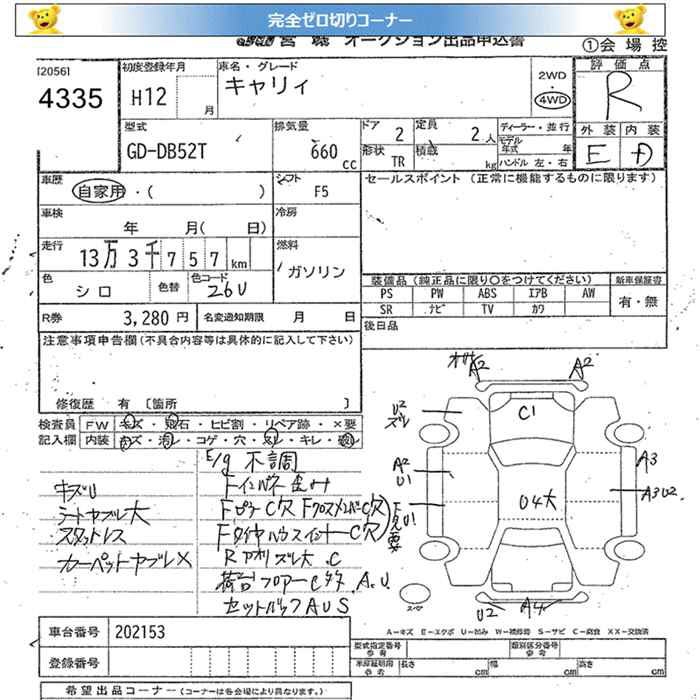 完全ゼロ切りコーナー
オークション出品申込書
①会場控
[2056]
4335
初度登録年月
H12
月
車名・グレード
キャリィ
2WD
・
4WD
評価点
R
外装 内装
E D
型式
GD-DB52T
排気量
660 cc
ドア 2
定員 2 人
形状 TR
積載 kg
ディーラー・並行
モデル年式 年
ハンドル 左・右
車歴
自家用・( )
シフト F5
セールスポイント (正常に機能するものに限ります)
車検
年 月( 日)
冷房
走行
13万3千757km
燃料
ガソリン
色
シロ
色替
色コード
26U
装備品(純正品に限り○をつけてください)
新車保証書
PS PW ABS エアB AW
SR ナビ TV カワ
有・無
R券 3,280円
名変通知期限 月 日
後日品
注意事項申告欄(不具合内容等は具体的に記入して下さい)
修復歴 有 〔箇所 〕
検査員記入欄
FW キズ・飛石・ヒビ割・リペア跡・×要
内装 キズ・汚レ・コゲ・穴・スレ・キレ・破レ
E/g 不調
キズU
シートヤブレ大
スタットレス
カーペットヤブレ×
セットバックAUS
A2
A2
U2
ズレ
C1
A2
U1
U1
U4大
A3
A3U2
U2
A4
スペア
A-キズ E-エクボ U-凹み W-補修跡 S-サビ C-腐食 XX-交換済
車台番号 202153
登録番号
型式指定番号
参考
類別区分番号
参考
車庫証明用
参考
長さ cm
幅 cm
高さ cm
希望出品コーナー(コーナーは各会場により異なります。)